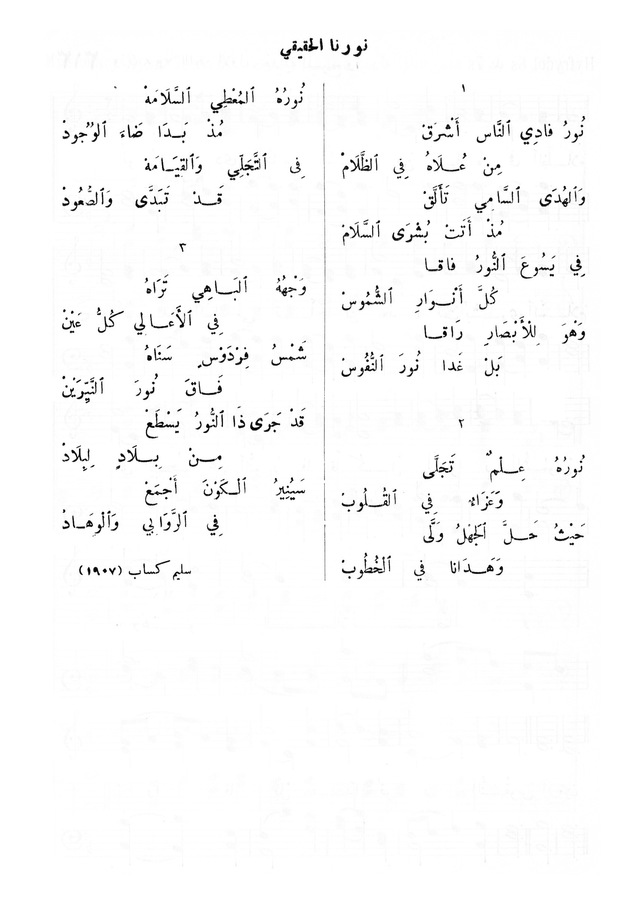 نورنا الحقيقي
١
نُورُ فادِي ٱلنَّاس أَشْرَقْ
مِنْ عُلَاهُ فِي ٱلظَّلَامْ
وَٱلهُدَى ٱلسَّامِي تَأَلَّقْ
مُذْ أَتَتْ بُشْرَى ٱلسَّلَامْ
فِي يَسُوعَ ٱلنُّورُ فاقـا
كُلَّ أَنْـوَارِ ٱلشُّمُوسْ
وَهْوَ لِلْأَبْصَارِ رَاقـا
بَلْ غَدا نُورَ ٱلنُّفُوسْ
٢
نُورُهُ عِـلْمٌ تَجَلَّى
وَعَزَاءٌ فِي ٱلقُـلُوبْ
حَيْثُ حَـلَّ ٱلجَهْلُ وَلَّى
وَهَدَانا في ٱلْخُطُوبْ
نُورُهُ ٱلمُعْطِي ٱلسَّلَامَهْ
مُذْ بَـدَا ضَاءَ ٱلوُجُودْ
فِى ٱلتَّجَلِّي وَٱلقِيَـامَهْ
قَـدْ تَبَدَّى وَٱلصُّعُودْ
٣
وَجْهُهُ ٱلبَـاهِي تَرَاهُ
فِي ٱلأَعَالِي كُلُّ عَيْنْ
شَمْسُ فِرْدَوْسٍ سَنَاهُ
فَـاقَ نُورَ ٱلنَّيِّرَيْنْ
قَدْ جَرَى ذَا ٱلنُّورُ يَسْطَعْ
مِـنْ بِـلَادٍ لِبِلَادْ
سَيُنِيرُ ٱلـكَوْنَ أَجْمَعْ
فِي ٱلرَّوَابِي وَٱلْوِهَـادْ
سليم كساب (١٩٠٧)